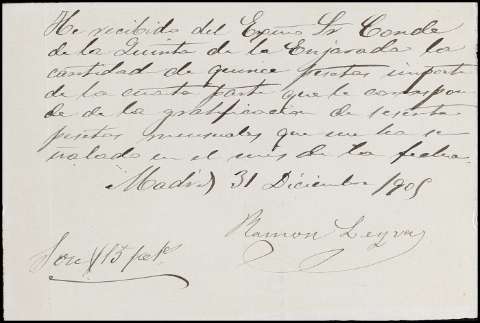 He recibido del Excmo Sr Conde
de la Quinta de la Enjarada la
cantidad de quince pesetas importe
de la cuarta parte que le correspon
de de la gratificacion de sesenta
pesetas mensuales que me ha se
ñalado en el mes de la fecha.
Madrid 31 Diciembre 1905
Ramon Leyva
Son 15 pts